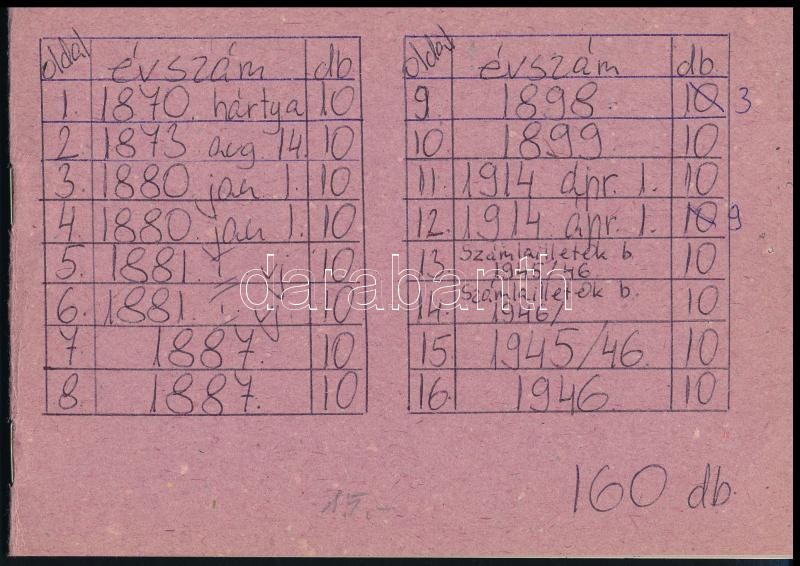 oldal évszám db.
1. 1870. hártya 10
2. 1873 aug 14. 10
3. 1880 jan 1. 10
4. 1880 jan 1. 10
5. 1881. I. 10
6. 1881. 10
7 1887. 10
8. 1887. 10
oldal évszám db.
9. 1898. 10 3
10. 1899. 10
11. 1914 ápr. 1. 10
12. 1914. ápr. 1. 10 9
13. Számlailleték b. 1945/46 10
14. Számlailletők b. 1946/ 10
15. 1945/46. 10
16. 1946. 10
darabanth
160 db.
15.-